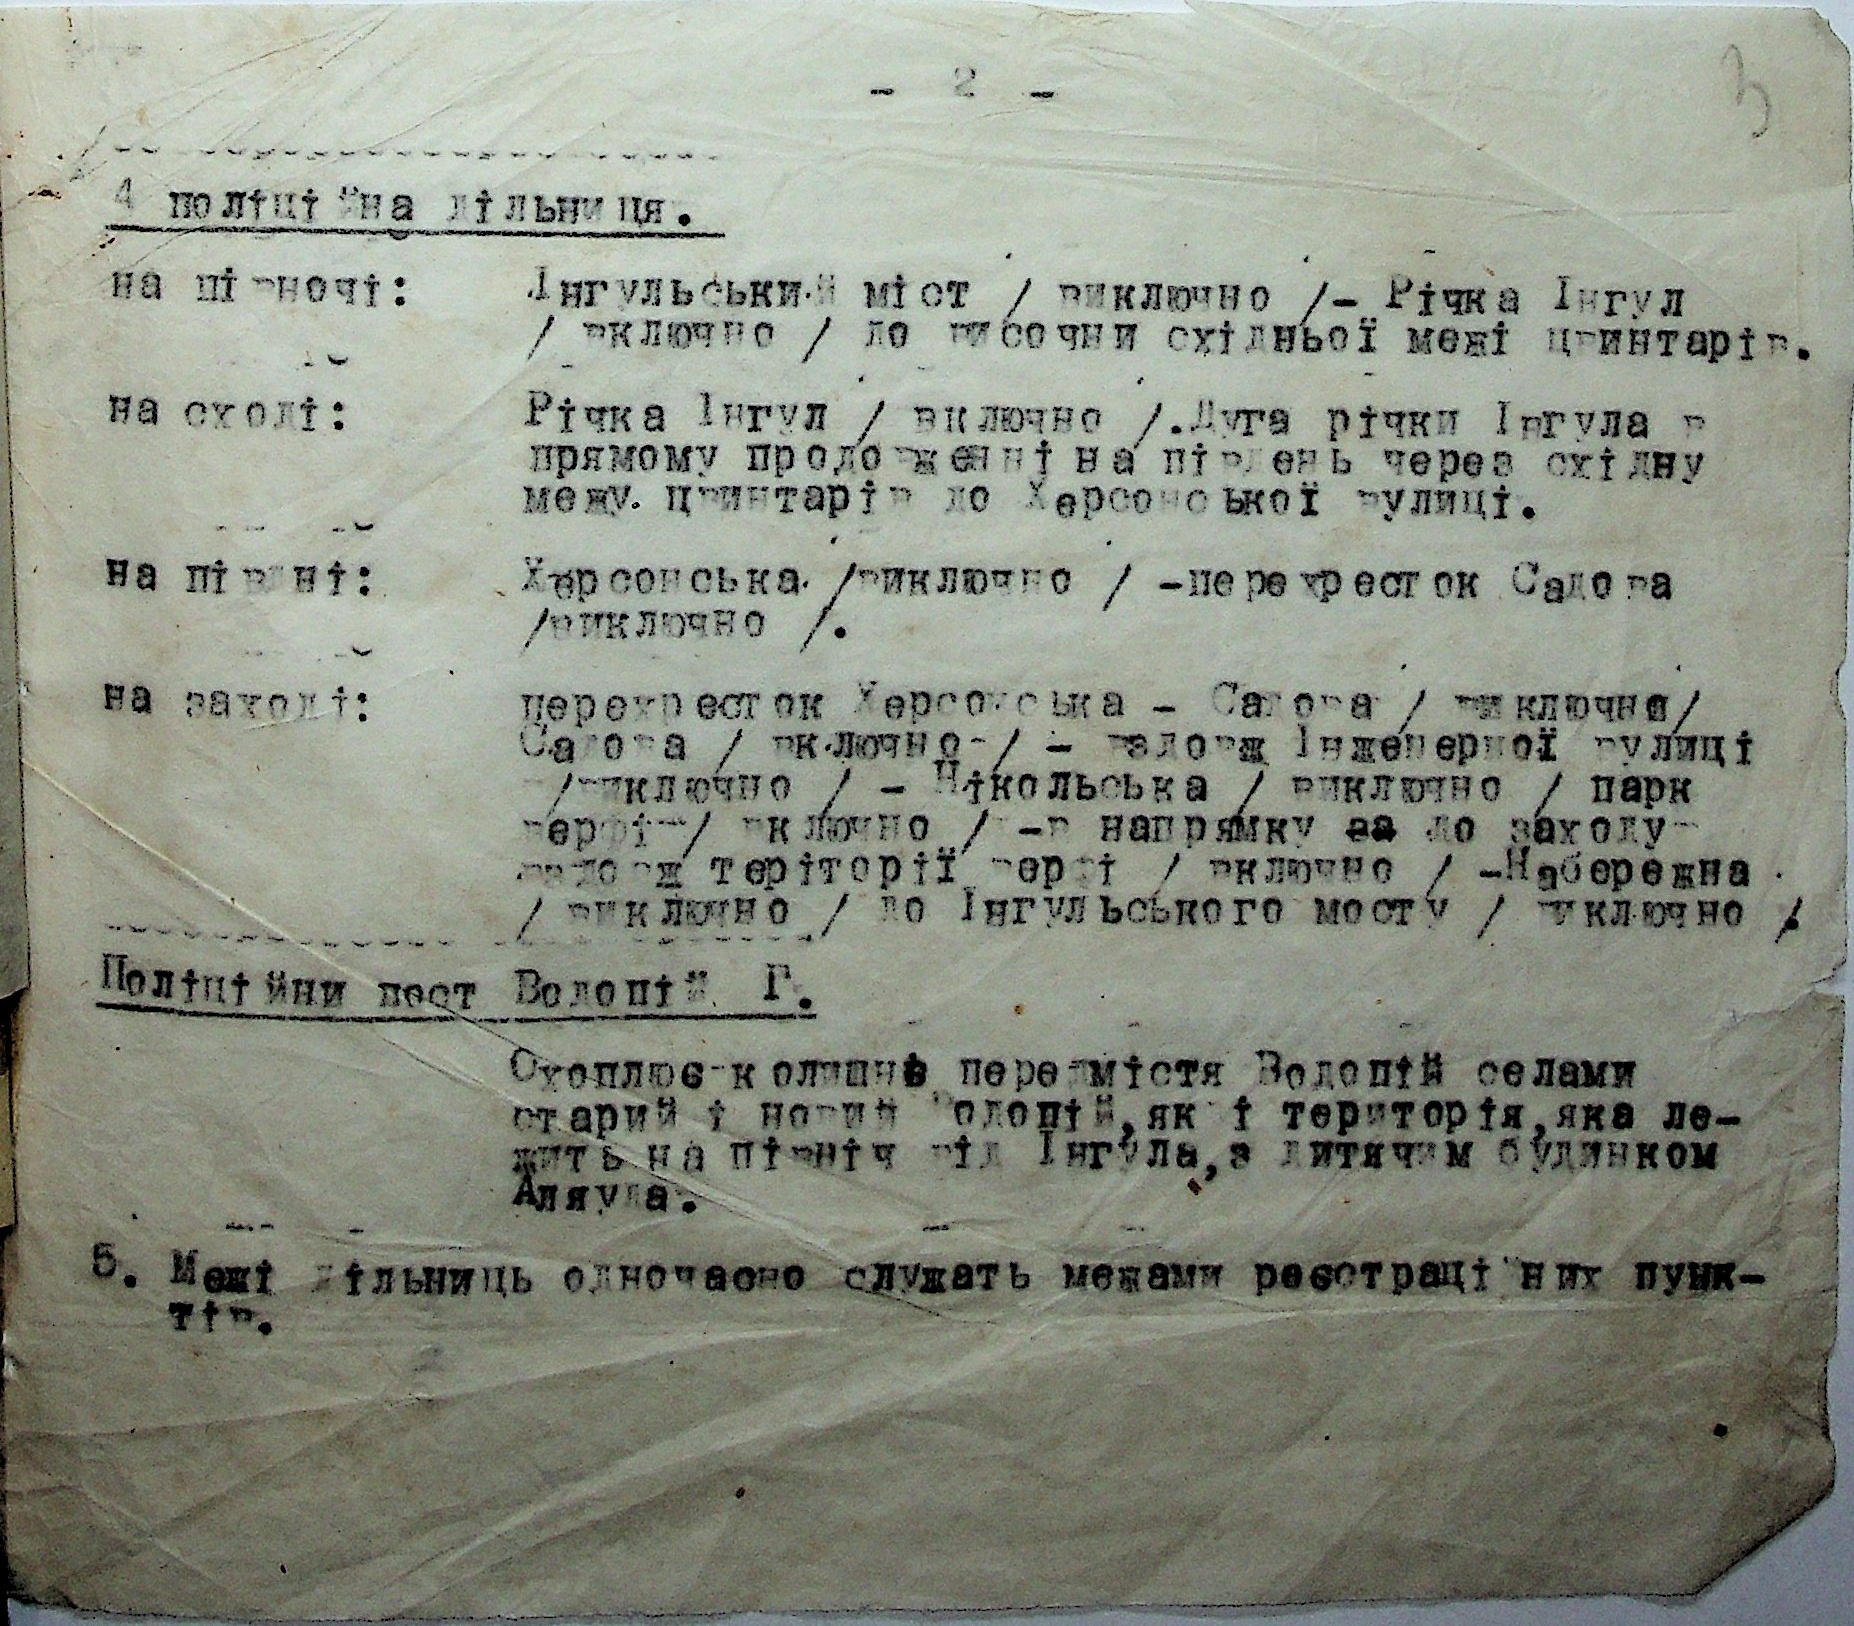 - 2 -
3
4 поліційна дільниця.
на півночі: Інгульський міст / виключно /- Річка Інгул
/ включно / до височин східньої межі цвинтарів.
на сході: Річка Інгул / включно /. Дуга річки Інгула в
прямому продовженні на південь через східну
межу цвинтарів до Херсонської вулиці.
на півдні: Херсонська /виключно / -перехресток Садова
/виключно /.
на заході: перехресток Херсонська - Садова / виключно/
Садова / включно / - вздовж Інженерної вулиці
/виключно / - Нікольська / виключно / парк
верфі / включно / -в напрямку до заходу
вздовж теріторії верфі / включно / -Набережна
/ виключно / до Інгульського мосту / виключно /.
Поліційни пост Водопій Г.
Охоплює колишнє передмістя Водопій селами
старий і новий Водопій, як і територія, яка ле-
жить на північ від Інгула, з дитячим будинком
Аляуда.
5. Межі дільниць одночасно служать межами реєстраційних пунк-
тів.